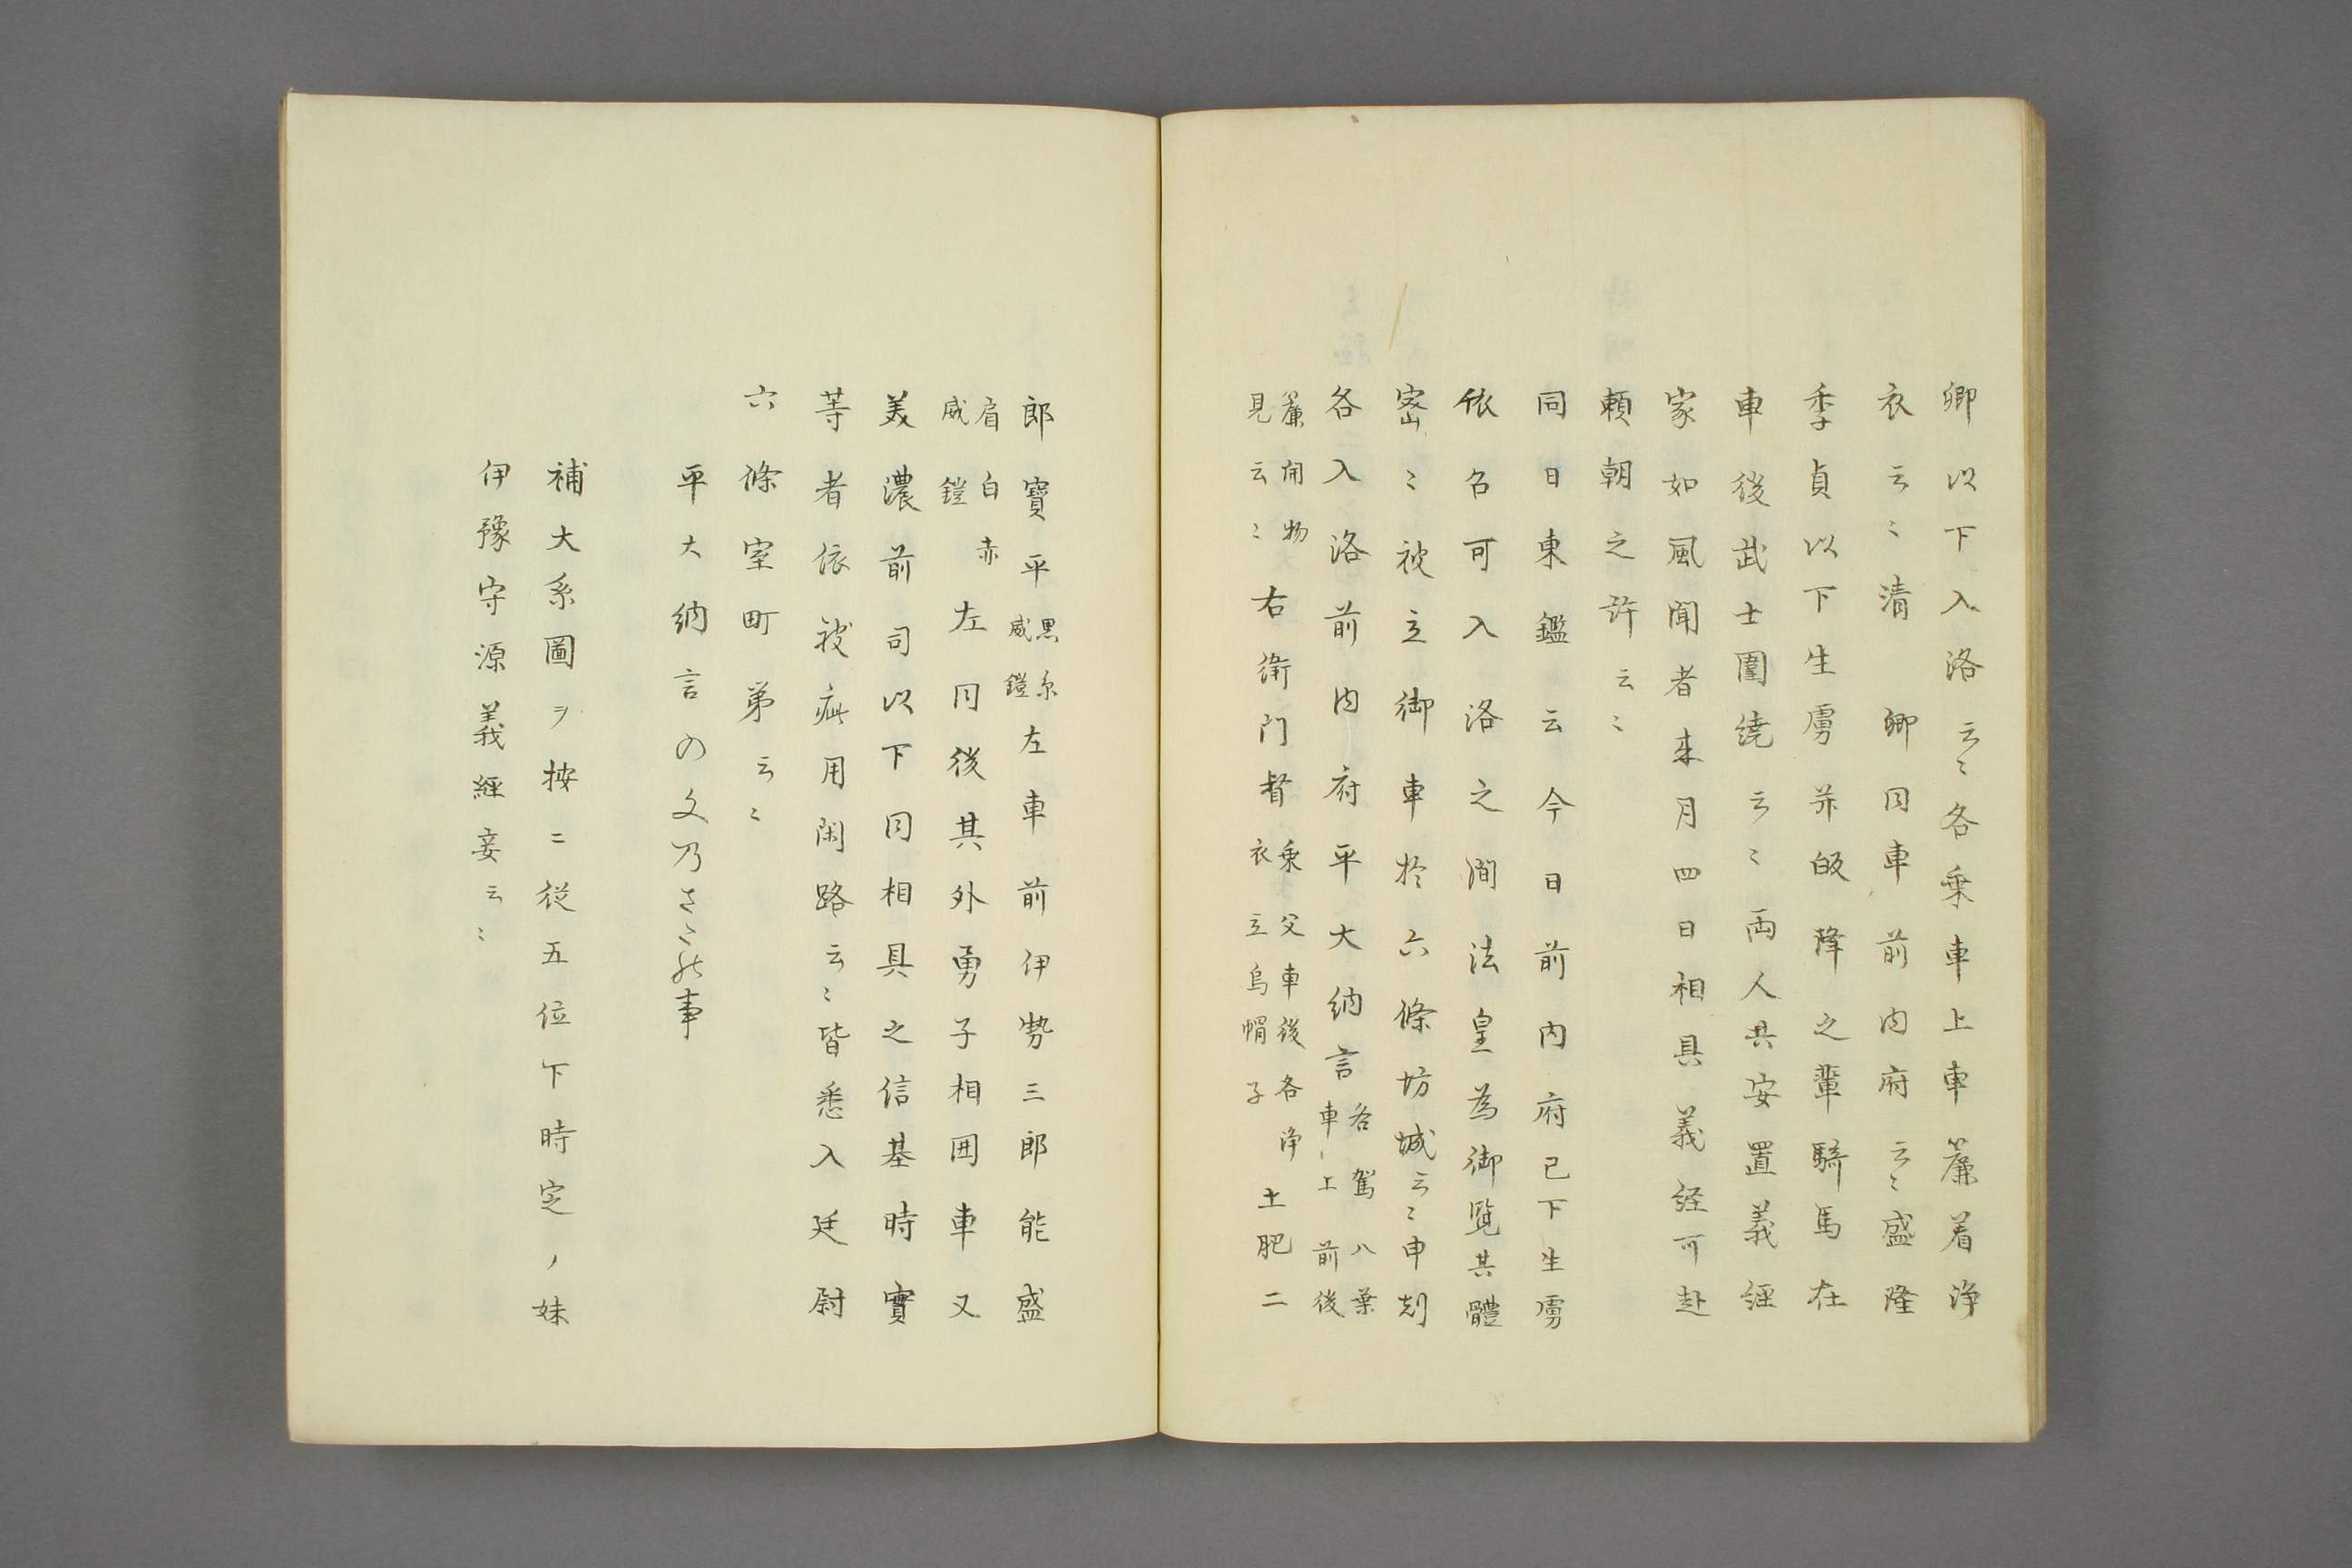 卿以下入洛云〻各乗車上車簾着浄
衣云〻清卿同車前内府云〻盛隆
季貞以下生虜并皈降之輩騎馬在
車後武士圍繞云〻両人共安置義經
家如風聞者来月四日相具義経可赴
頼朝之許云〻
同日東鑑云今日前内府已下生虜
依召可入洛之間法皇為御覧其體
密〻被立御車於六條坊城云〻申刻
各入洛前内府平大納言各駕八葉車上前後
簾開物見云〻右衛門督乗父車後各浄衣立烏帽子土肥二
郎實平黒糸威鎧左車前伊勢三郎能盛
肩白赤威鎧左同後其外勇子相囲車又
美濃前司以下同相具之信基時實
等者依被疵用閑路云〻皆悉入廷尉
六條室町第云〻
平大納言の文乃さた能事
補大系圖ヲ按ニ従五位下時定ノ妹
伊豫守源義經妾云〻